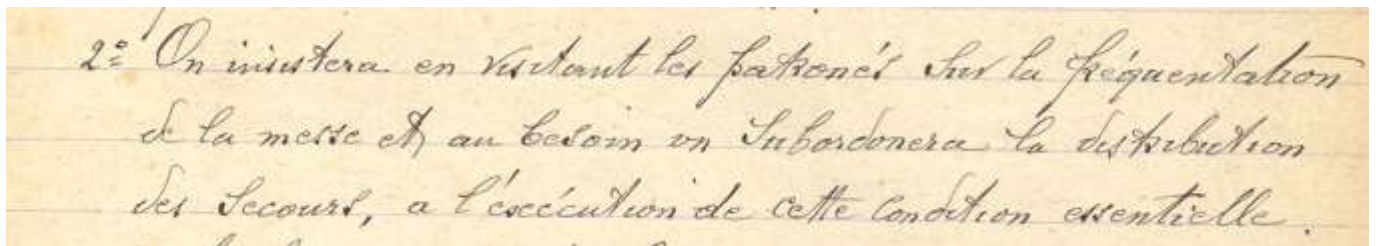 2º On insistera en visitant les patronés sur la fréquentation
de la messe et au besoin on subordonera la distribution
des secours, a l'éxécution de cette condition essentielle.